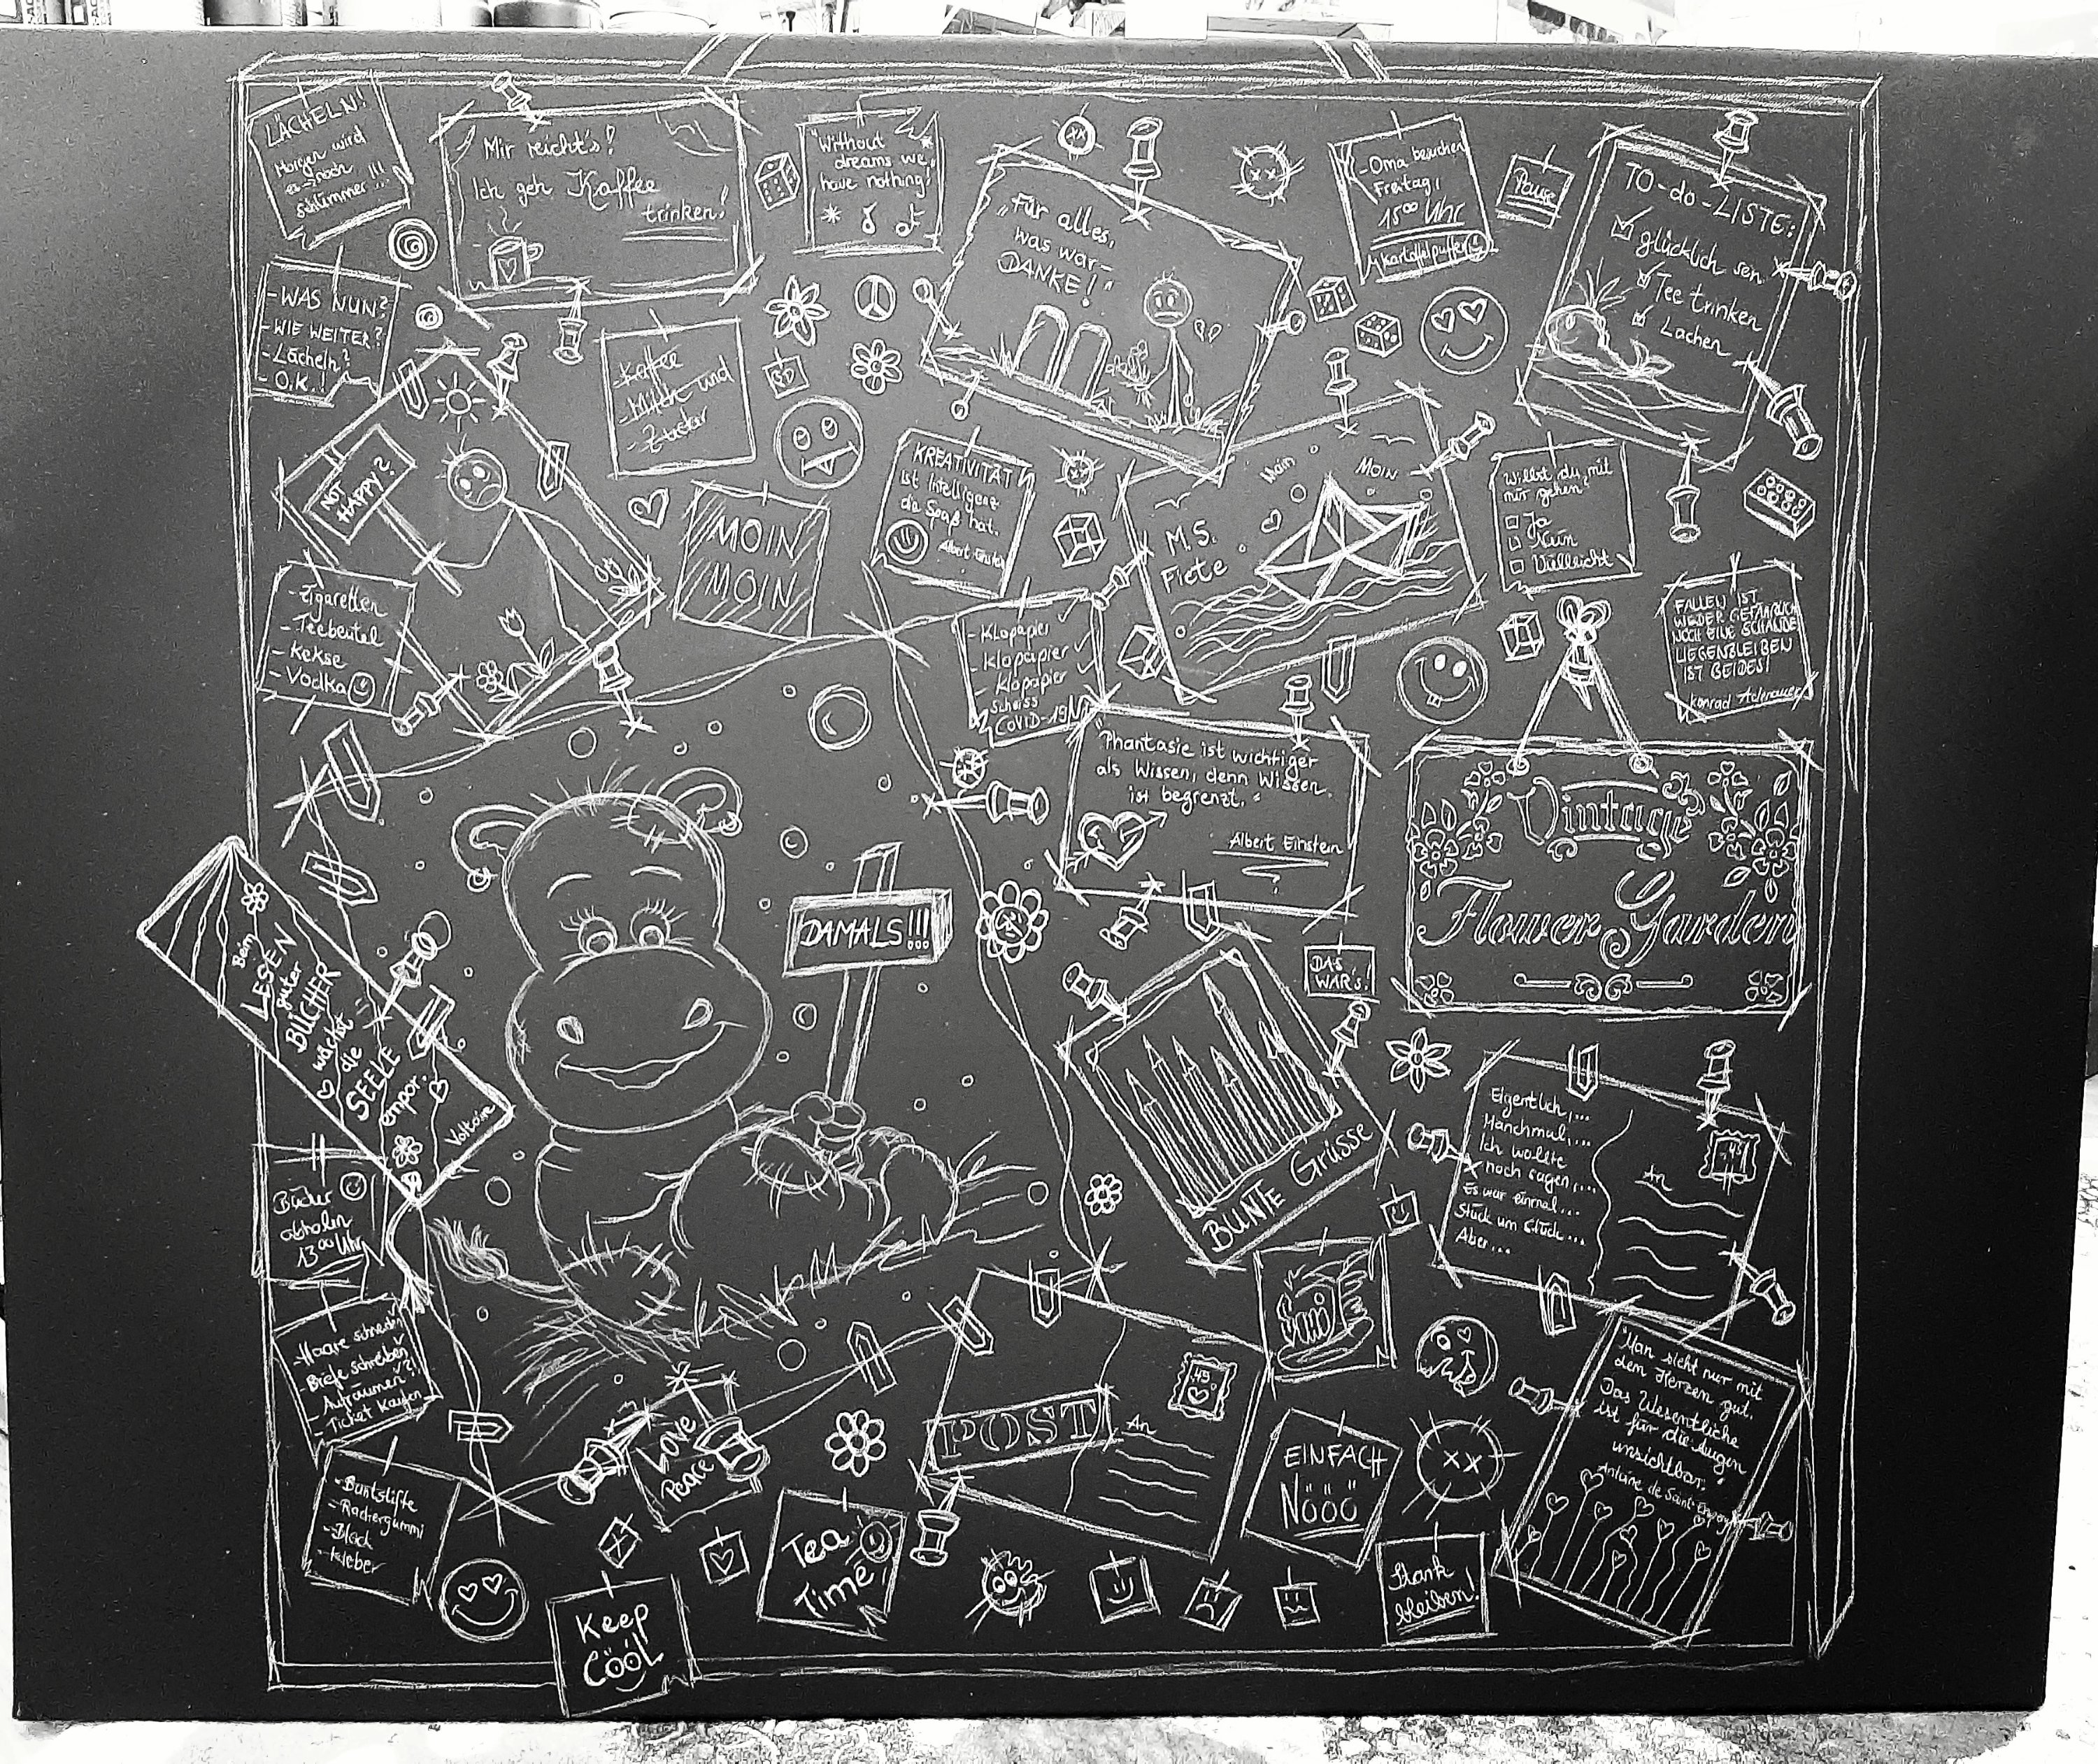 LÄCHELN!
Morgen wird
es noch
schlimmer!!!
Mir reicht's!
Ich geh Kaffee
trinken!
"Without
dreams we
have nothing!
"Für alles,
was war-
DANKE!"
-Oma besuchen
Freitag,
15⁰⁰ Uhr
Kartoffelpuffer
Pause
TO-do-LISTE:
glücklich sein
Tee trinken
Lachen
-WAS NUN?
-WIE WEITER?
-Lächeln?
-O.K.!
-Kaffee
-Milch und
-Zucker
NOT
HAPPY?
MOIN
MOIN
KREATIVITÄT
ist Intelligenz
die Spaß hat.
Albert Einstein
Moin
MOIN
M.S.
Fiete
Willst du mit
mir gehen?
Ja
Nein
Vielleicht
-Zigaretten
-Teebeutel
-Kekse
-Vodka
-Klopapier
-Klopapier
-Klopapier
Scheiss
COVID-19
FALLEN IST
WEDER GEFÄHRLICH
NOCH EINE SCHANDE
LIEGENBLEIBEN
IST BEIDES!
Konrad Adenauer
"Phantasie ist wichtiger
als Wissen, denn Wissen
ist begrenzt."
Albert Einstein
Vintage
Flower Garden
DAMALS!!!
Beim
LESEN
guter
BÜCHER
wächst
die
SEELE
empor.
Voltaire
DAS
WAR'S!
BUNTE Grüsse
Eigentlich,...
Manchmal,...
Ich wollte
noch sagen,...
Es war einmal...
Stück um Stück...
Aber...
An
45
Bücher
abholen
13⁰⁰ Uhr
-Haare schneiden
-Briefe schreiben
-Aufräumen?!
-Ticket kaufen
-Buntstifte
-Radiergummi
-Block
-Kleber
LOVE
Peace
POST
An
45
"Man sieht nur mit
dem Herzen gut.
Das Wesentliche
ist für die Augen
unsichtbar."
Antoine de Saint-Exupery
EINFACH
NÖÖÖ
Tea
Time
Keep
Cööl
Stark
bleiben!